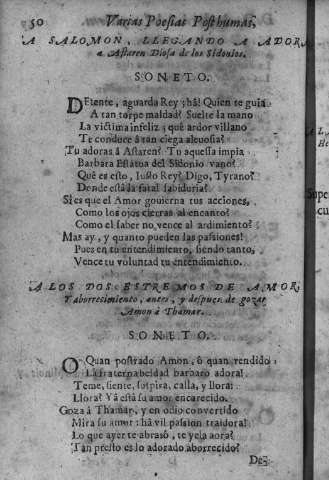 50 Varias Poesias Posthumas,
A SALOMON, LLEGANDO A ADORAR
a Astaren Diosa de los Sidonios.
SONETO.
DEtente, aguarda Rey; há! Quien te guia
A tan torpe maldad? Suelte la mano
La victima infeliz; què ardor villano
Te conduce à tan ciega alevosia?
Tu adoras á Astaren? Tu aquessa impia
Barbara Estatua del Sidonio vano?
Què es esto, Iusto Rey? Digo, Tyrano?
Donde está la fatal sabiduria?
Si es que el Amor govierna tus acciones,
Como los ojos cierras al encanto?
Como el saber no vence al ardimiento?
Mas ay, y quanto pueden las passiones!
Pues en tu entendimiento, siendo tanto,
Vence tu voluntad tu entendimiento.
A LOS DOS ESTREMOS DE AMOR,
Y aborrecimiento, antes, y despues de gozar
Amon á Thamar.
SONETO.
O Quan postrado Amon, ô quan rendido
La fraternal beldad barbaro adora!
Teme, siente, suspira, calla, y llora:
Llora? Yà está su amor encarecido.
Goza á Thamar, y en odio convertido
Mira su amor: há vil passion traidora!
Lo que ayer te abrasó, te yela aora?
Tan presto es lo adorado aborrecido?
De-